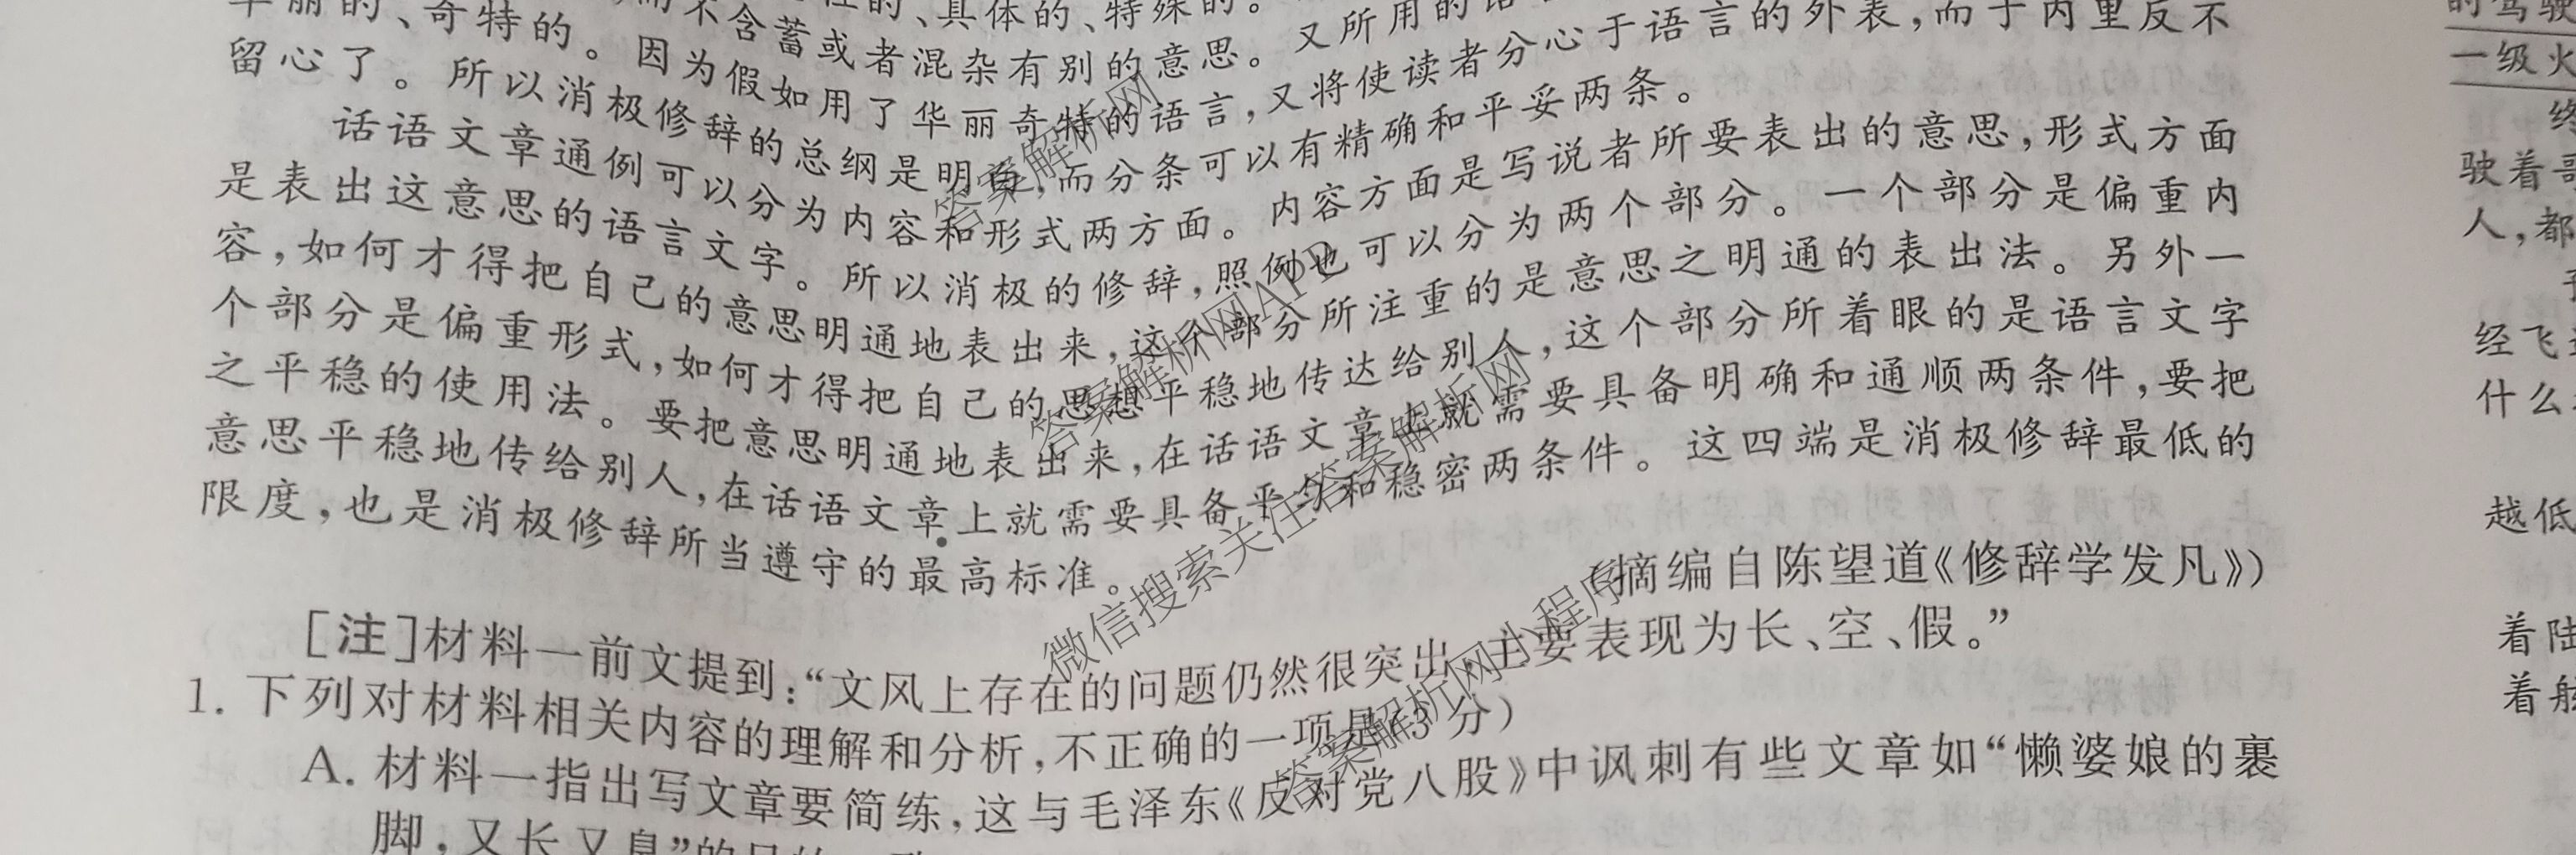 华丽的、奇特的。
而不含蓄或者混杂有别的意思。又所用的语
的、具体的、特殊的。
留心了。因为假如用了华丽奇特的语言,又将使读者分心于语言的外表,而于内里反不
所以消极修辞的总纲是明白,而分条可以有精确和平妥两条。
话语文章通例可以分为内容和形式两方面。内容方面是写说者所要表出的意思,形式方面
是表出这意思的语言文字。所以消极的修辞,照例也可以分为两个部分。一个部分是偏重内
容,如何才得把自己的意思明通地表出来,这个部分所注重的是意思之明通的表出法。另外一
个部分是偏重形式,如何才得把自己的思想平稳地传达给别人,这个部分所着眼的是语言文字
之平稳的使用法。要把意思明通地表出来,在话语文章上就需要具备明确和通顺两条件,要把
意思平稳地传给别人,在话语文章上就需要具备平匀和稳密两条件。这四端是消极修辞最低的
限度,也是消极修辞所当遵守的最高标准。
(摘编自陈望道《修辞学发凡》)
[注]材料一前文提到:“文风上存在的问题仍然很突出,主要表现为长、空、假。”
1. 下列对材料相关内容的理解和分析,不正确的一项是(3分)
A. 材料一指出写文章要简练,这与毛泽东《反对党八股》中讽刺有些文章如“懒婆娘的裹
脚,又长又臭”的目的一致
答案解析网
答案解析网APP
微信搜索关注答案解析网
答案解析网小程序
的驾驶
一级火
终
驶着
人,都
经飞
什么
越低
着陆
着